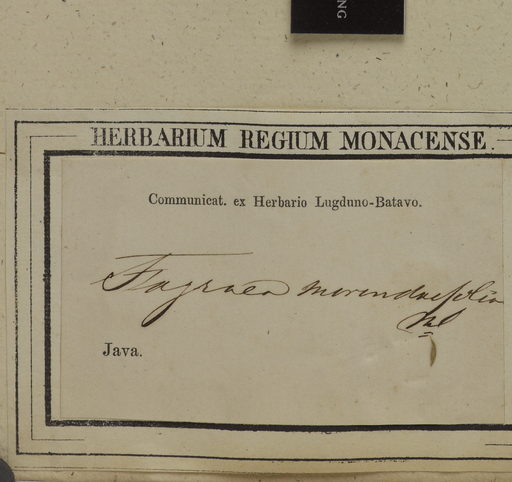 NG
HERBARIUM REGIUM MONACENSE.
Communicat. ex Herbario Lugduno-Batavo.
Fagraea morindaefolia
Bl
Java.